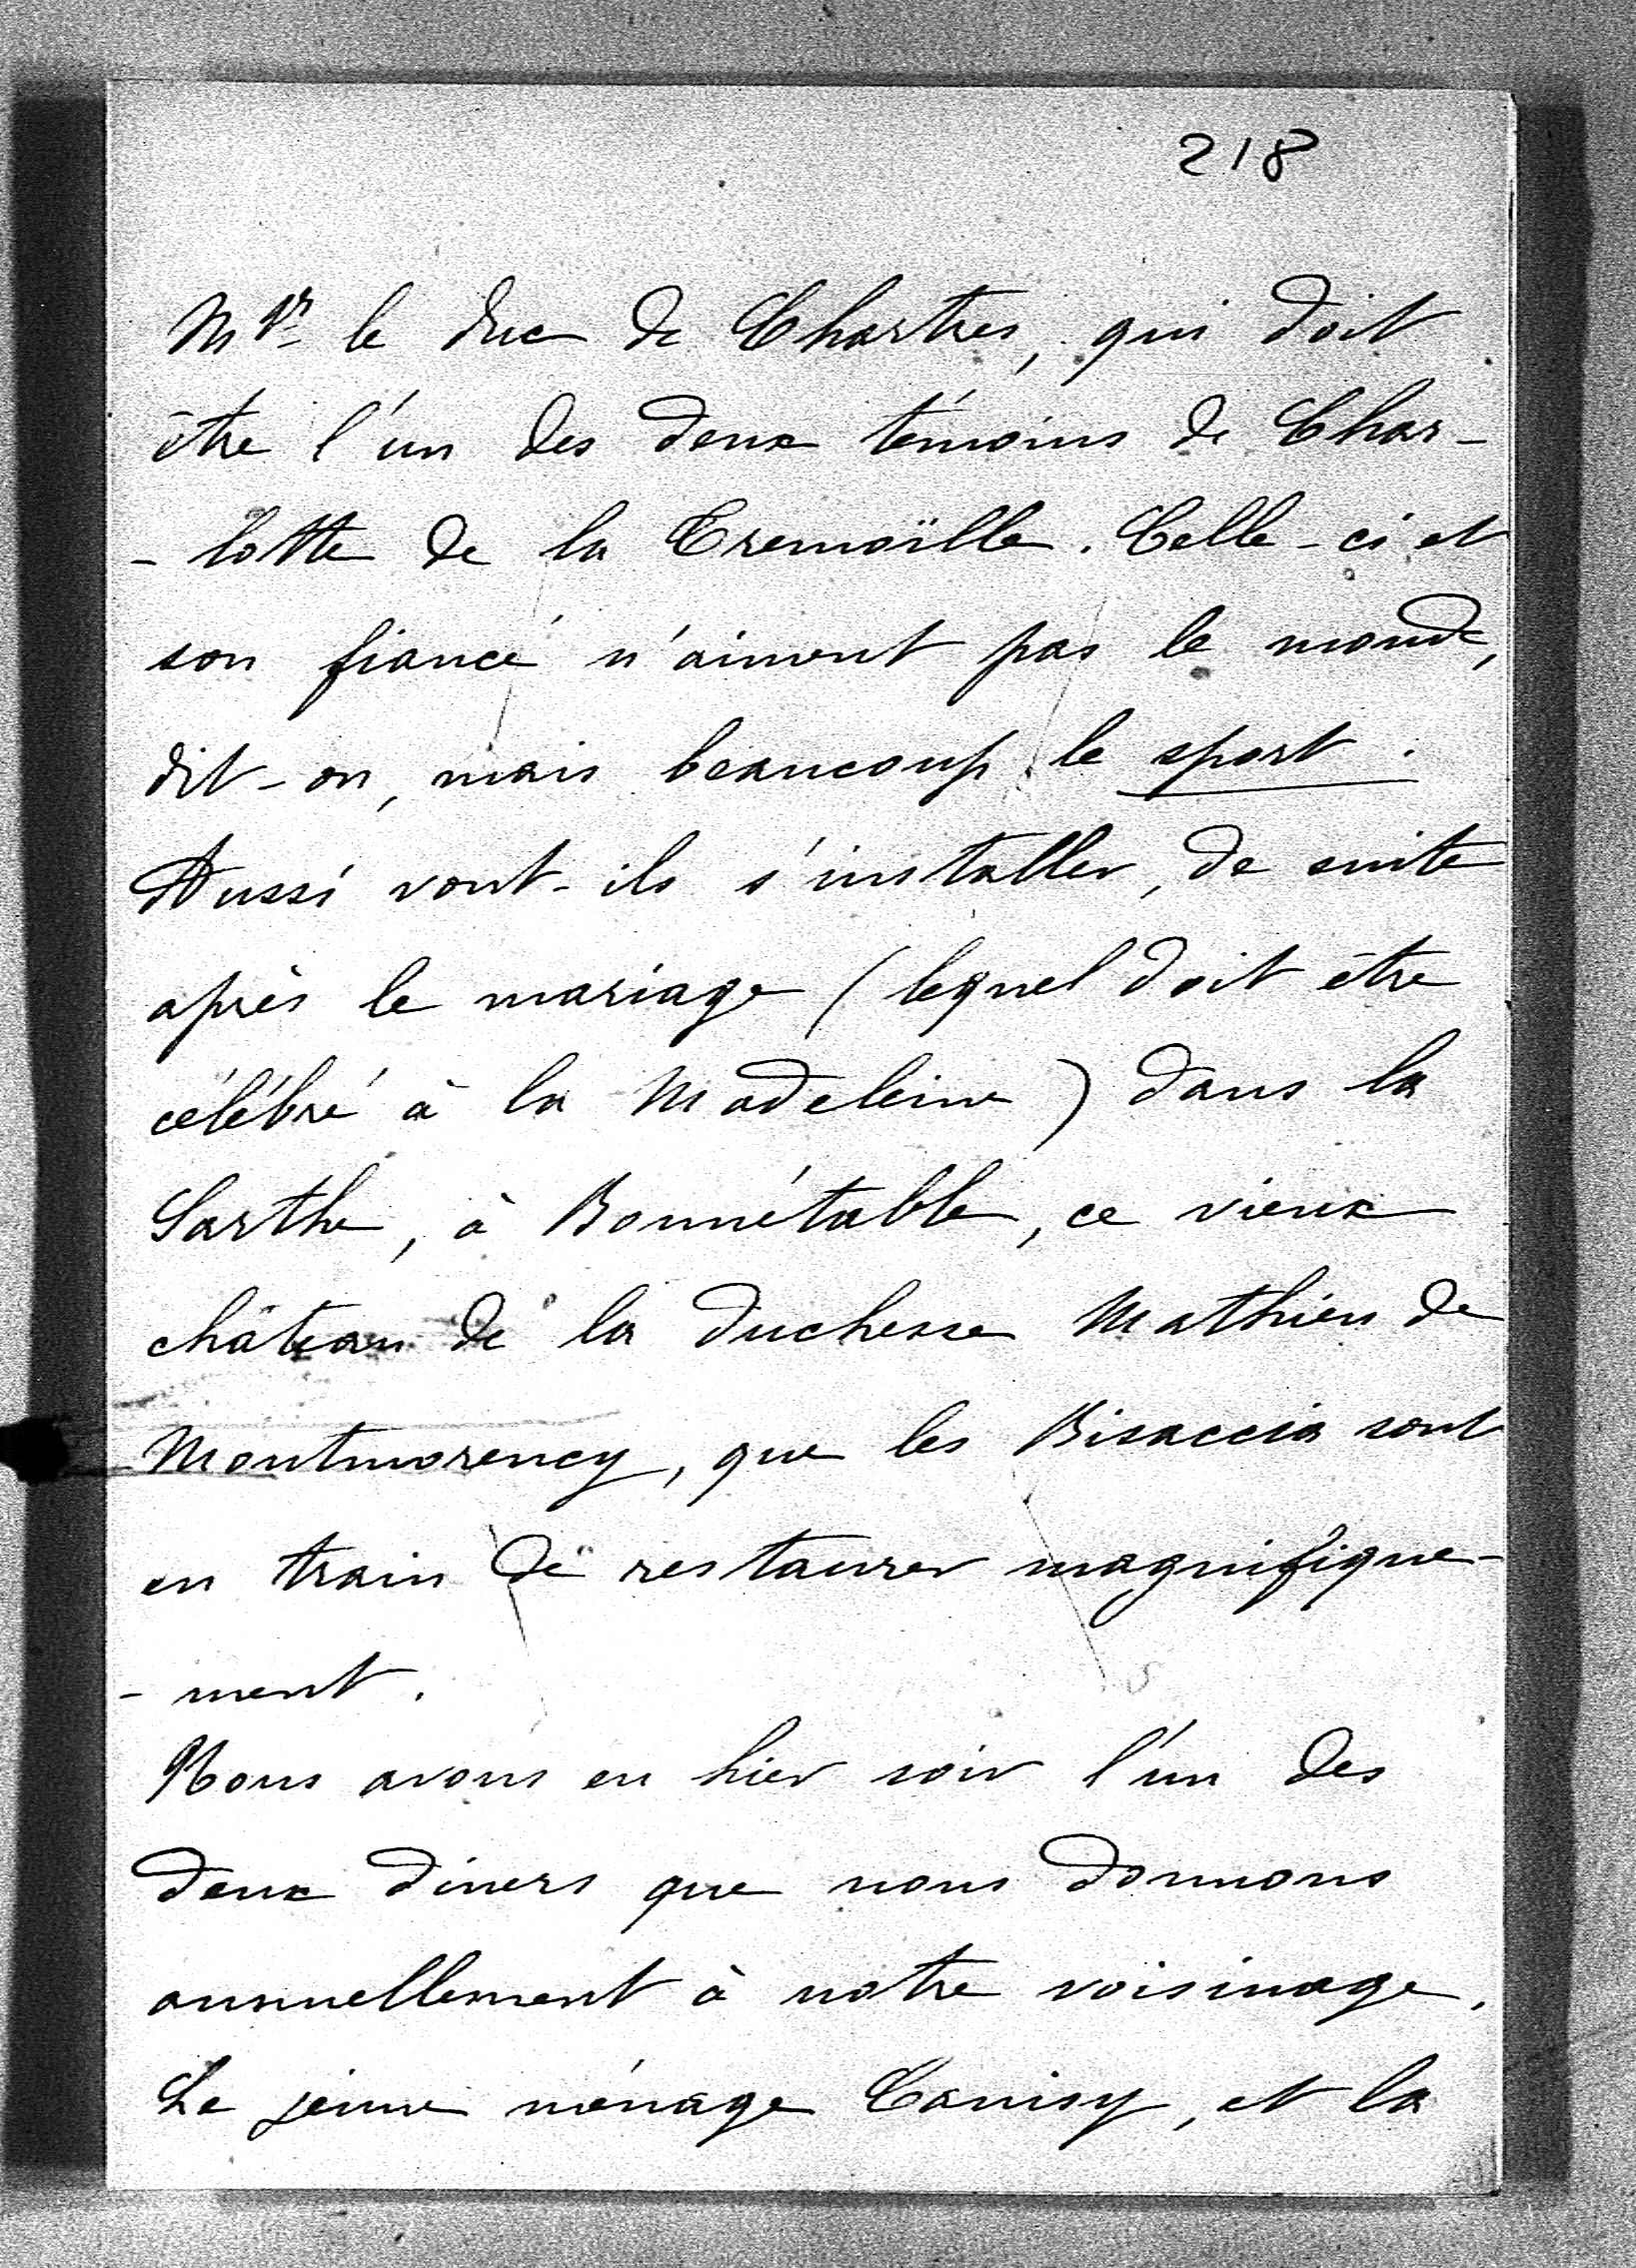 218
Mgr le duc de Chartres, qui doit
être l'un des deux témoins de Char-
- lotte de la Tremoïlle. Celle-ci et
son fiancé n'aiment pas le monde,
dit-on, mais beaucoup le sport.
Aussi vont-ils s'installer, de suite
après le mariage (lequel doit être
célébré à la Madeleine) dans la
Sarthe, à Bonnétable, ce vieux
château de la duchesse Mathieu de
Montmorency, que les Bisaccia sont
en train de restaurer magnifique-
- ment.
Nous avons eu hier soir l'un des
deux diners que nous donnons
annuellement à notre voisinage.
Le jeune ménage Canisy, et la